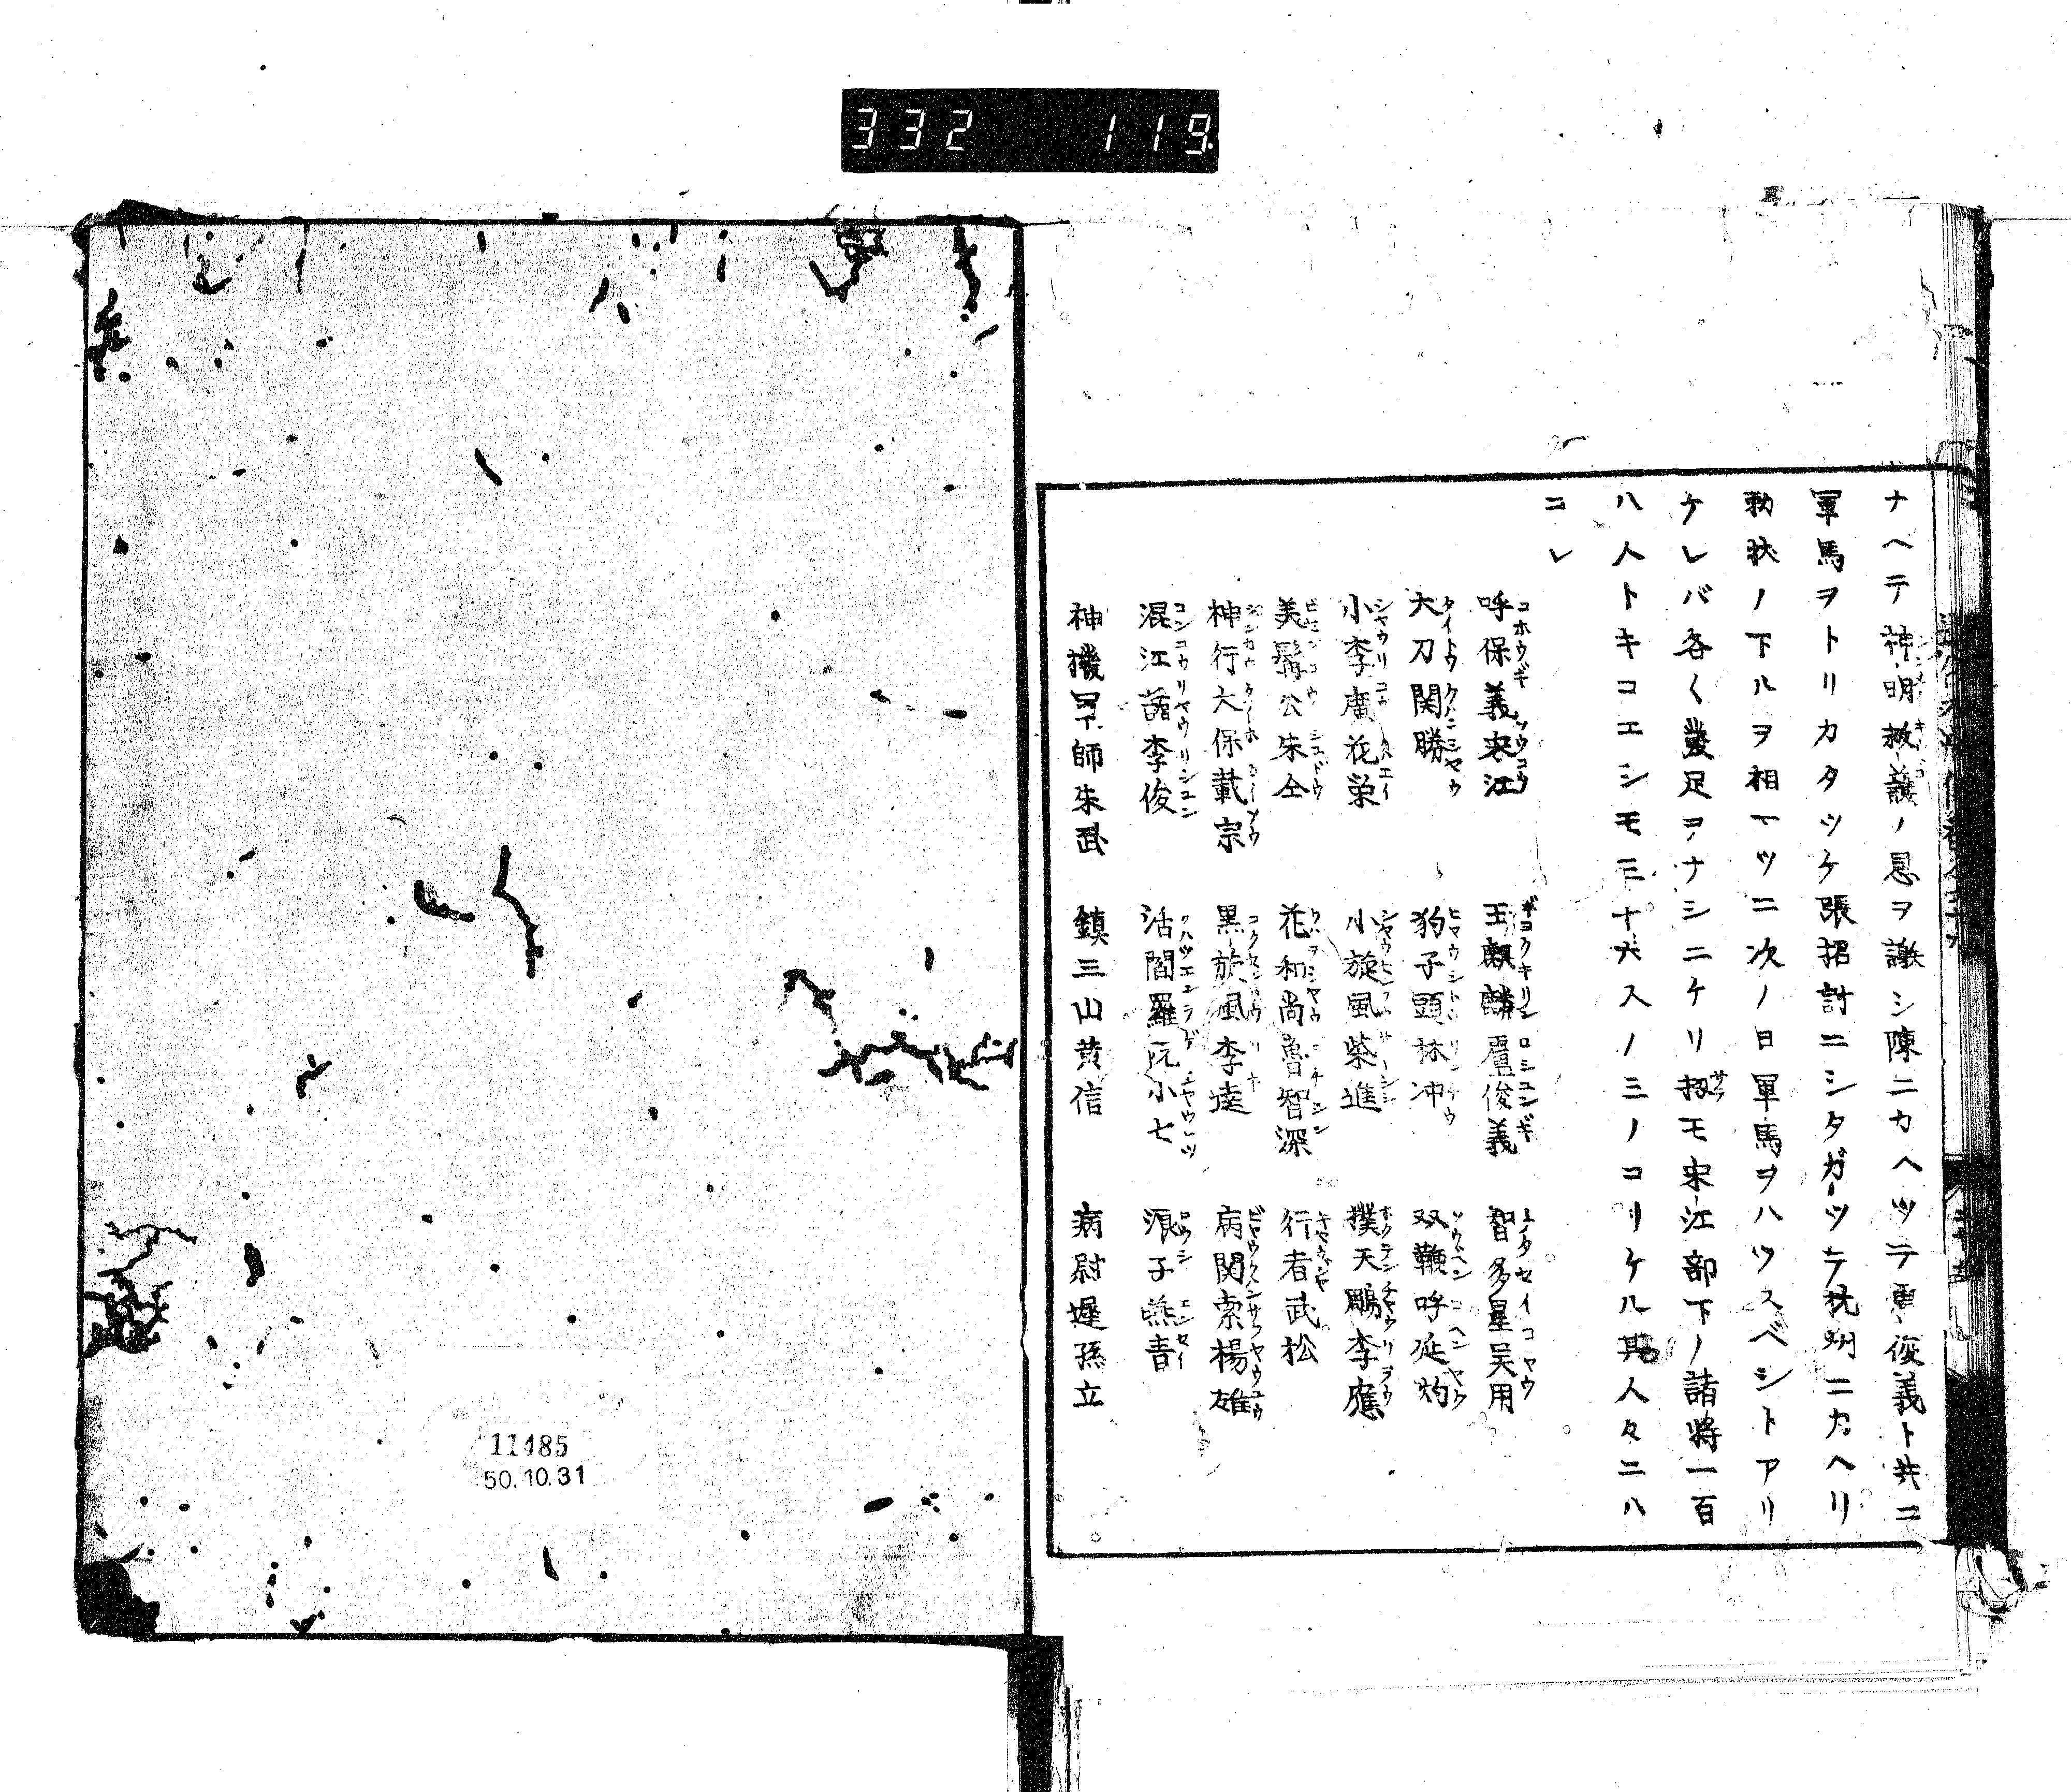 332 119
ナヘテ神明救護ノ恩ヲ謝シ陳ニカヘツテ盧俊義ト共ニ
軍馬ヲトリカタツケ張招討ニシタガツテ杭州ニカヘリ
勅状ノ下ルヲ相マツニ次ノ日軍馬ヲハツスベシトアリ
ケレバ各〱発足ヲナシニケリ扨モ宋江部下ノ諸將一百
八人トキコエシモ三十六人ノミノコリケル其人々ニハ
コレ
呼保義宋江 玉麒麟盧俊義 智多星呉用
大刀関勝 豹子頭林冲 双鞭呼延灼
小李廣花栄 小旋風柴進 撲天鵰李應
美髯公朱仝 花和尚魯智深 行者武松
神行太保戴宗 黒旋風李逵 病関索楊雄
混江龍李俊 活閻羅阮小七 浪子燕青
神機軍師朱武 鎮三山黄信 病尉遅孫立
11485
50.10.31